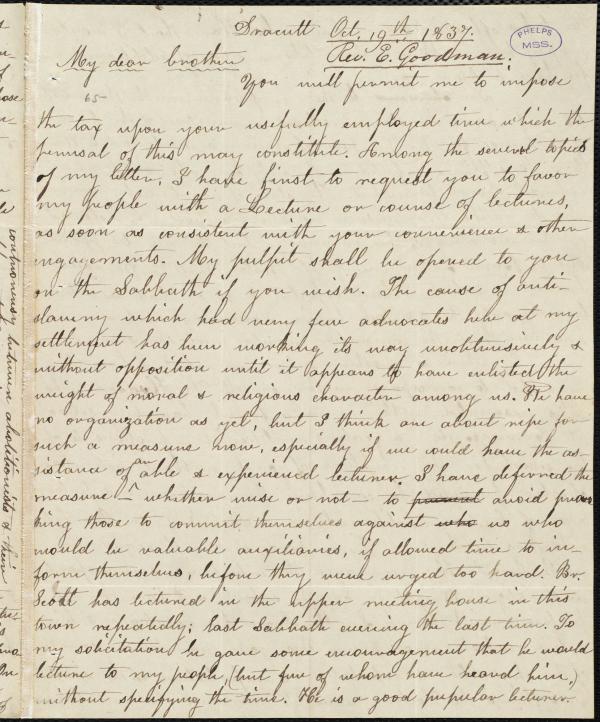 Dracutt Oct. 19th 1837.
PHELPS
MSS.
Rev. E. Goodman,
My dear brother
You will permit me to impose
65-
the tax upon your usefully employed time which the
perusal of this may constitute. Among the several topics
of my letter, I have first to request you to favor
my people with a Lecture or course of lectures,
as soon as consistent with your convenience & other
engagements. My pulpit shall be opened to you
on the Sabbath if you wish. The cause of anti-
slavery which had very few advocates here at my
settlement has been working its way unobtrusively &
without opposition until it appears to have enlisted the
weight of moral & religious character among us. We have
no organization as yet, but I think are about ripe for
such a measure now, especially if we could have the as-
sistance of an able & experienced lecturer. I have deferred the
measure - whether wise or not - to prevent avoid provo
king those to commit themselves against who us who
would be valuable auxiliaries, if allowed time to in-
form themselves, before they were urged too hard. Br.
Scott has lectured in the upper meeting house in this
town repeatedly; last Sabbath evening the last time. To
my solicitation he gave some encouragement that he would
lecture to my people, (but few of whom have heard him,)
without specifying the time. He is a good popular lecturer.
compromise between abolitionists & their